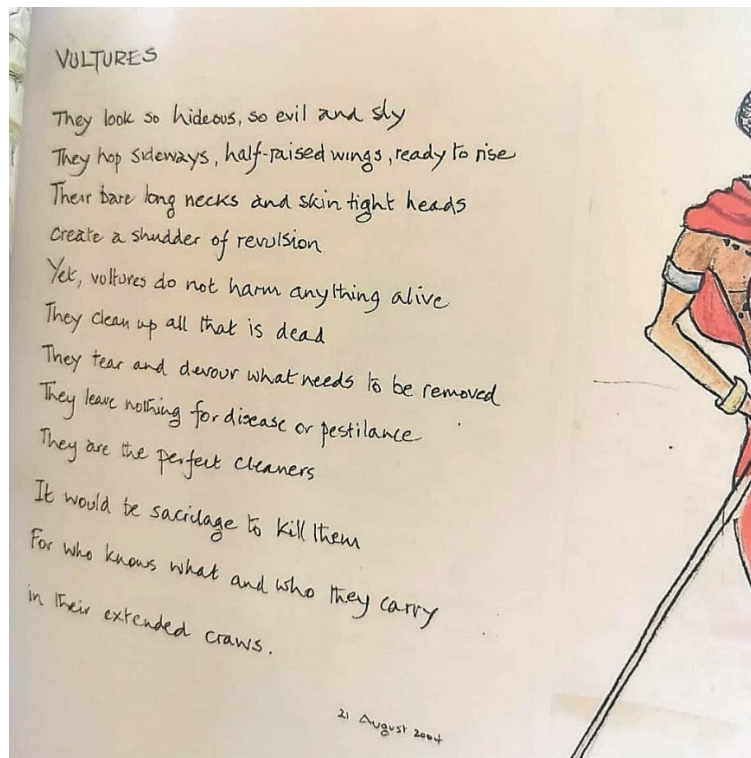 VULTURES
They look so hideous, so evil and sly
They hop sideways, half-raised wings, ready to rise
Their bare long necks and skin tight heads
create a shudder of revulsion
Yet, voltures do not harm anything alive
They clean up all that is dead
They tear and devour what needs to be removed
They leave nothing for disease or pestilance
They are the perfect cleaners
It would be sacrilage to kill them
For who knows what and who they carry
in their extended craws.
21 August 2004